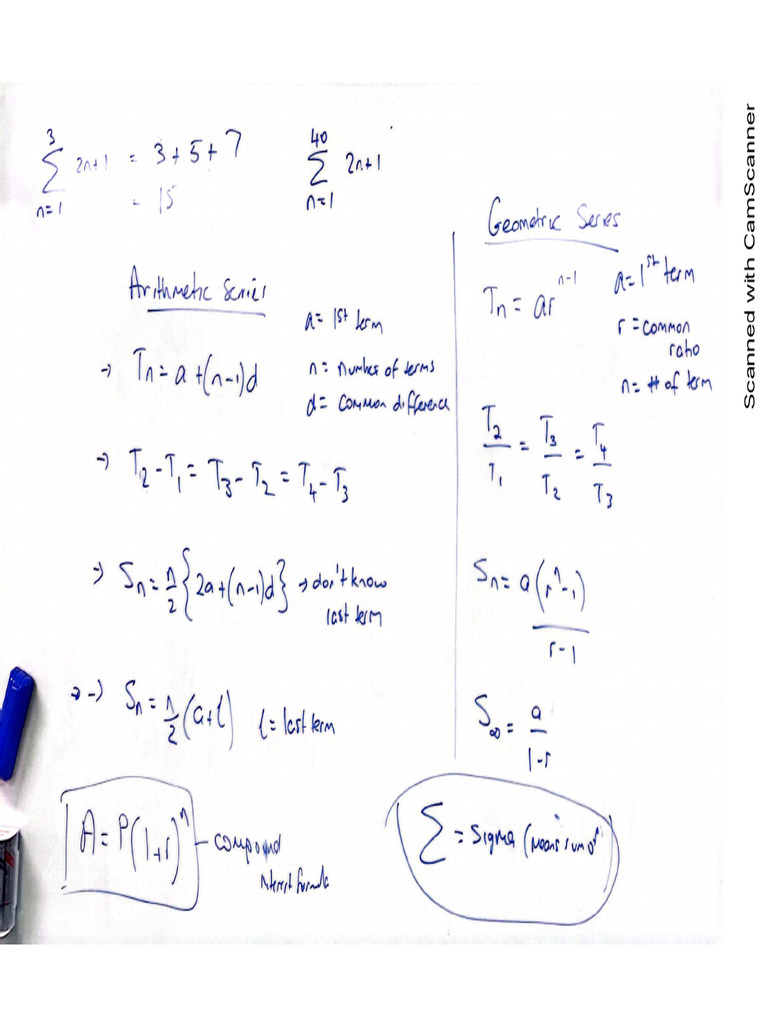 3
∑ 2n+1 = 3+5+7
n=1
= 15
40
∑ 2n+1
n=1
Arithmetic Series
a = 1st term
→ Tn = a+(n-1)d
n = number of terms
d = common difference
→ T2 - T1 = T3 - T2 = T4 - T3
→ Sn = n/2 {2a+(n-1)d} → don't know
last term
→ → Sn = n/2 (a+l) l = last term
A = P(1+r)^n - compound
interest formula
Geometric Series
Tn = ar^n-1
a = 1st term
r = common
ratio
n = # of term
T2/T1 = T3/T2 = T4/T3
Sn = a(r^n-1)/r-1
S∞ = a/1-r
∑ = Sigma (means sum of
Scanned with CamScanner